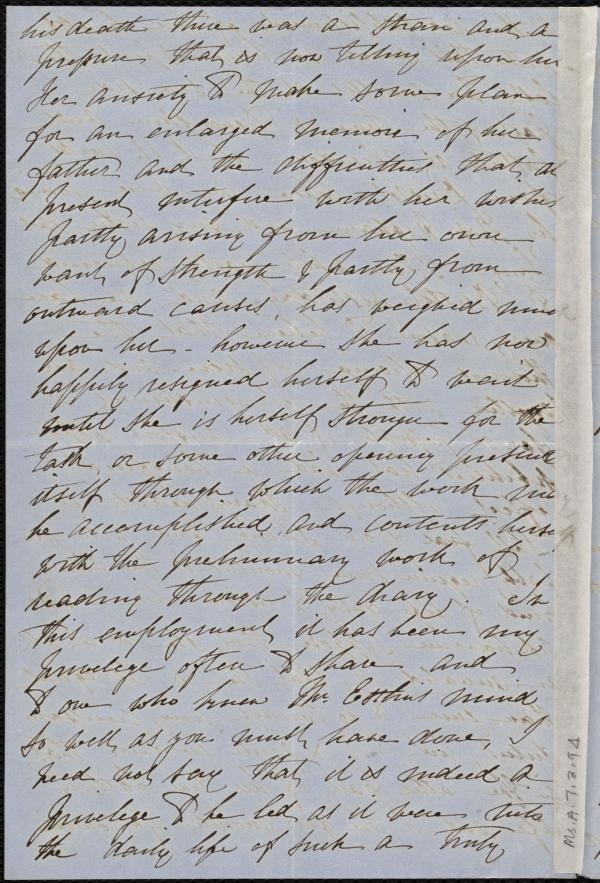 his death there was a strain and a
pressure that is now telling upon her
Her anxiety to make some plan
for an enlarged memoir of her
father and the difficulties that at
present interfere with her wishes
partly arising from her own
want of strength & partly from
outward causes, has weighed much
upon her - however she has now
happily resigned herself to wait
until she is herself stronger for the
task or some other opening presents
itself through which the work may
be accomplished and contents herse
with the preliminary work of
reading through the diary. In
this employment it has been my
privilege often to share and
to one who knew Mr. Estlin's mind
so well as you must have done, I
need not say that it is indeed a
privilege to be led as it were into
the daily life of such a truly
Ms.A.7.3.94